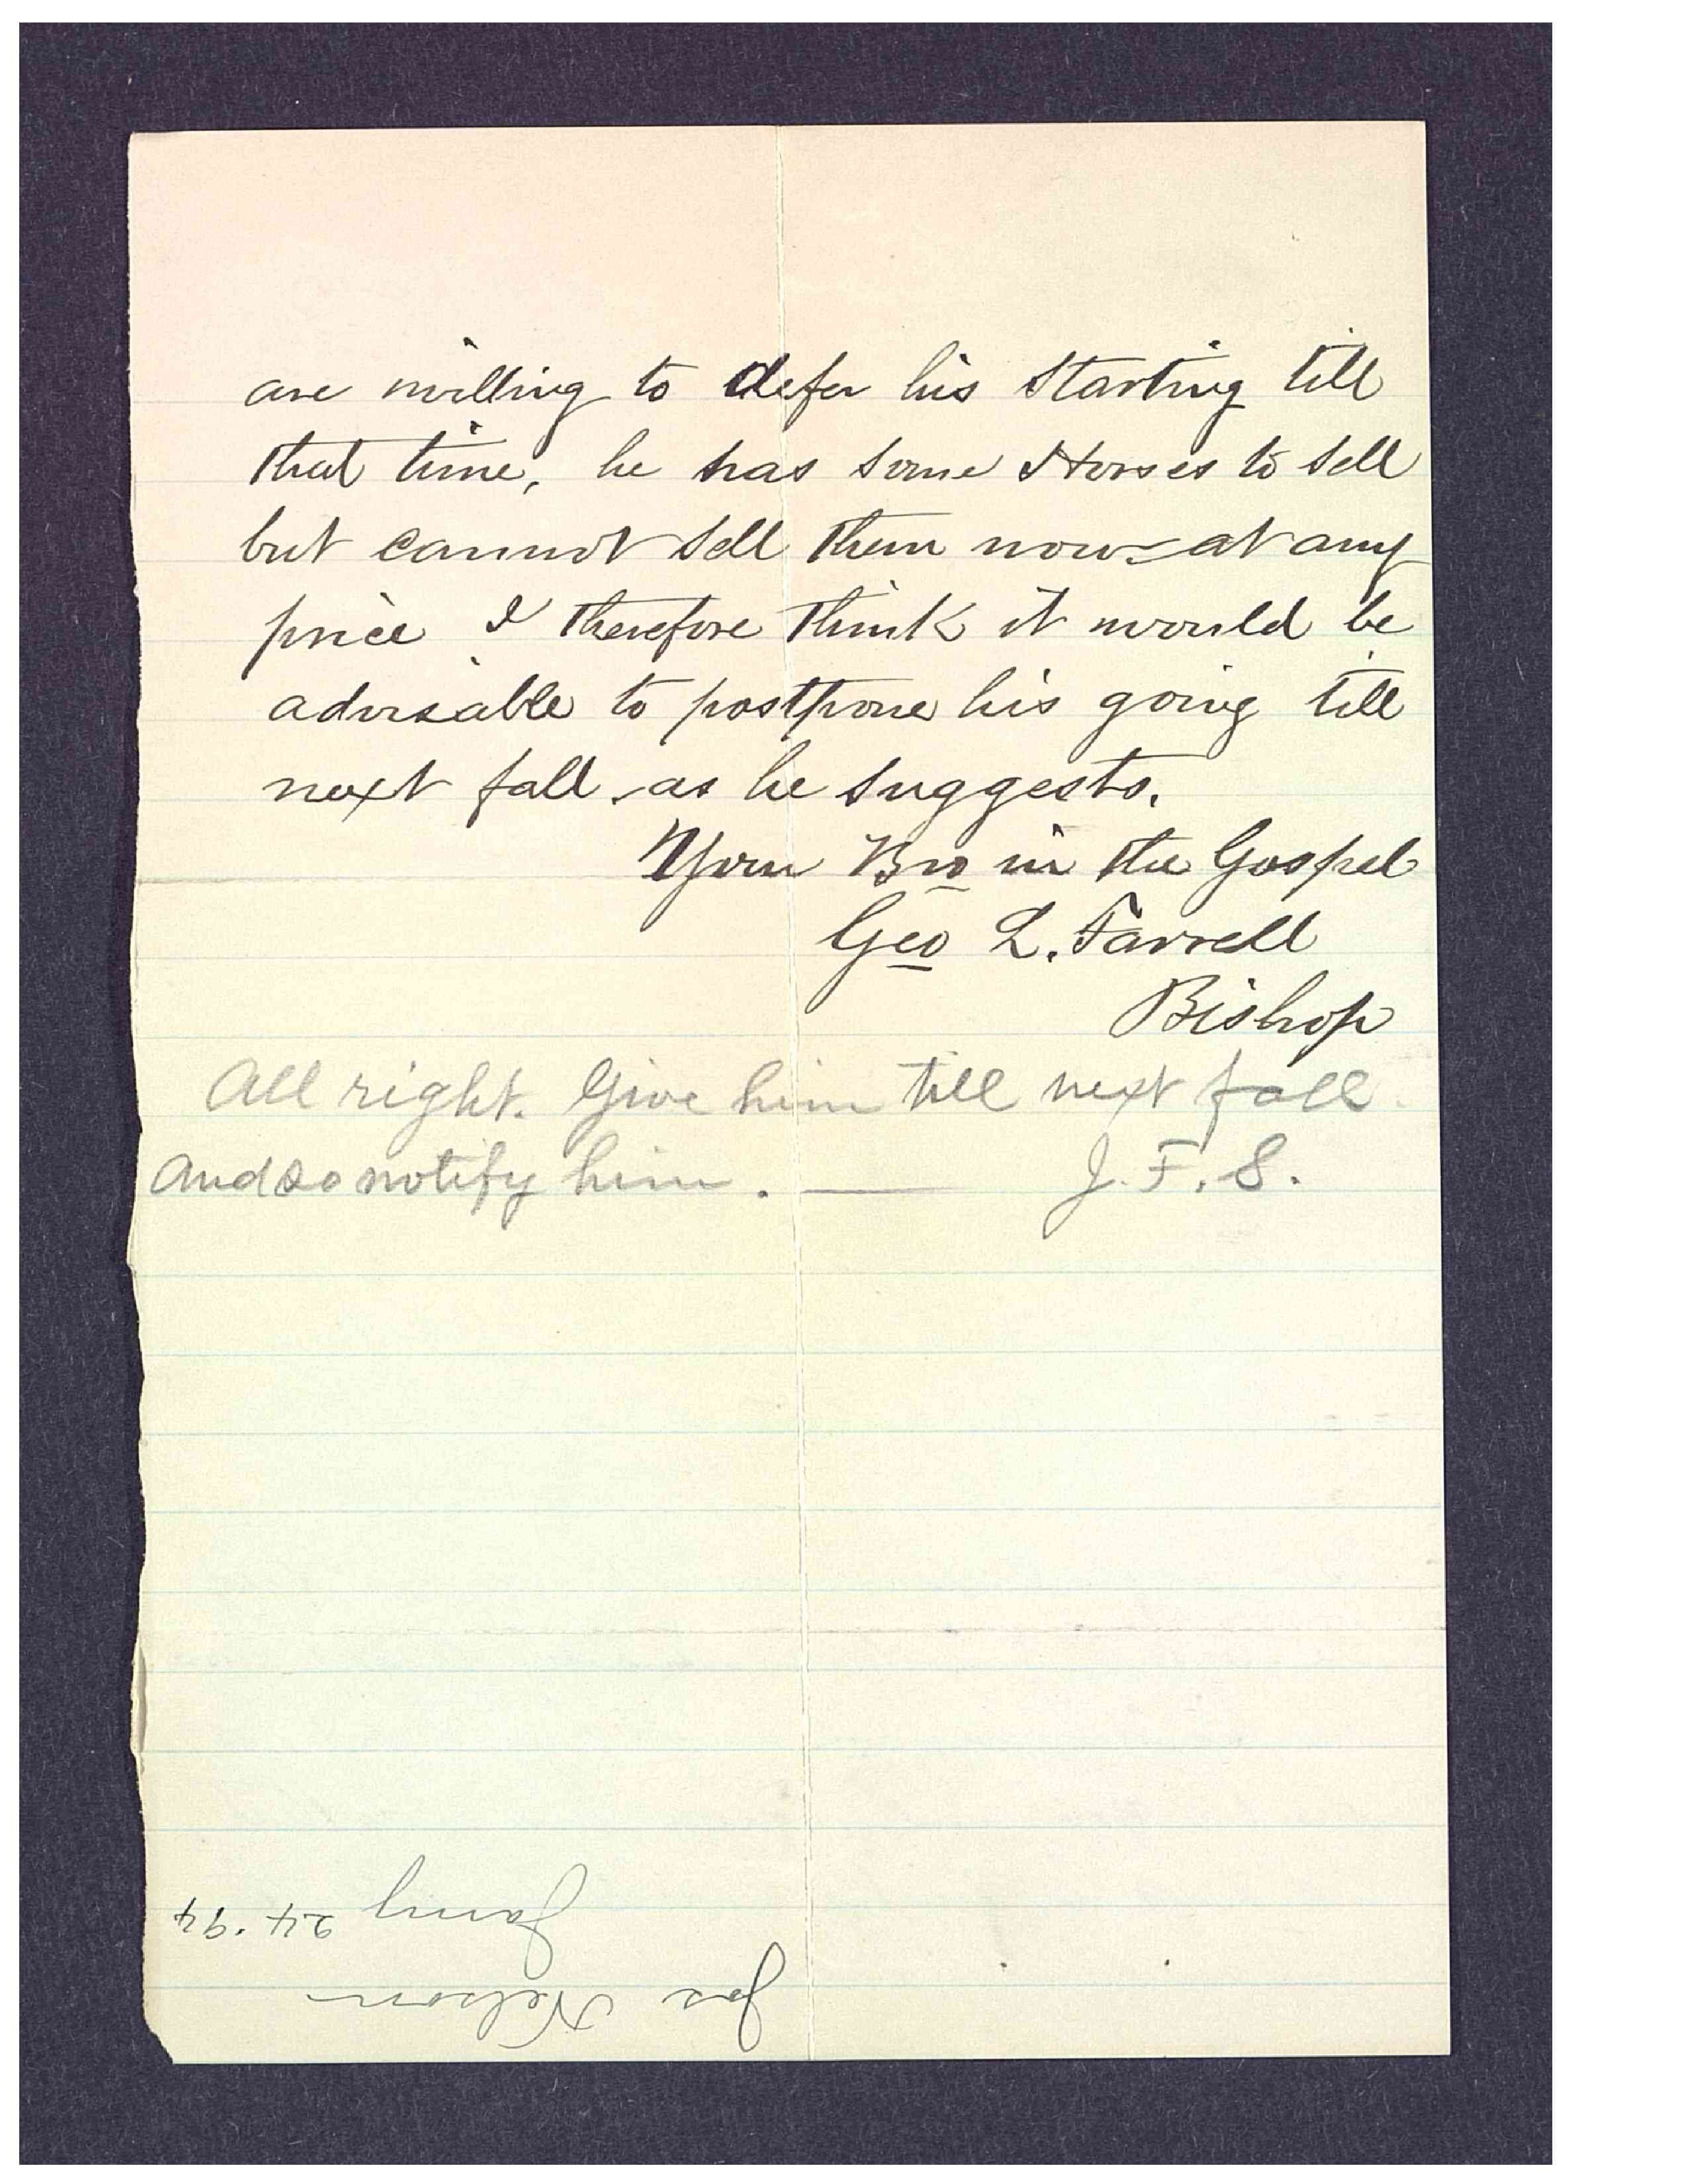 are willing to defer his starting till
that time, he has some Horses to sell
but cannot sell them now at any
price I therefore think it would be
advisable to postpone his going till
next fall as he suggests.
Your Bro in the Gospel
Geo L. Farrell
Bishop
All right. Give him till next fall.
And so notify him. — J. F. S.
Jos Nelson
Jany 24 '94